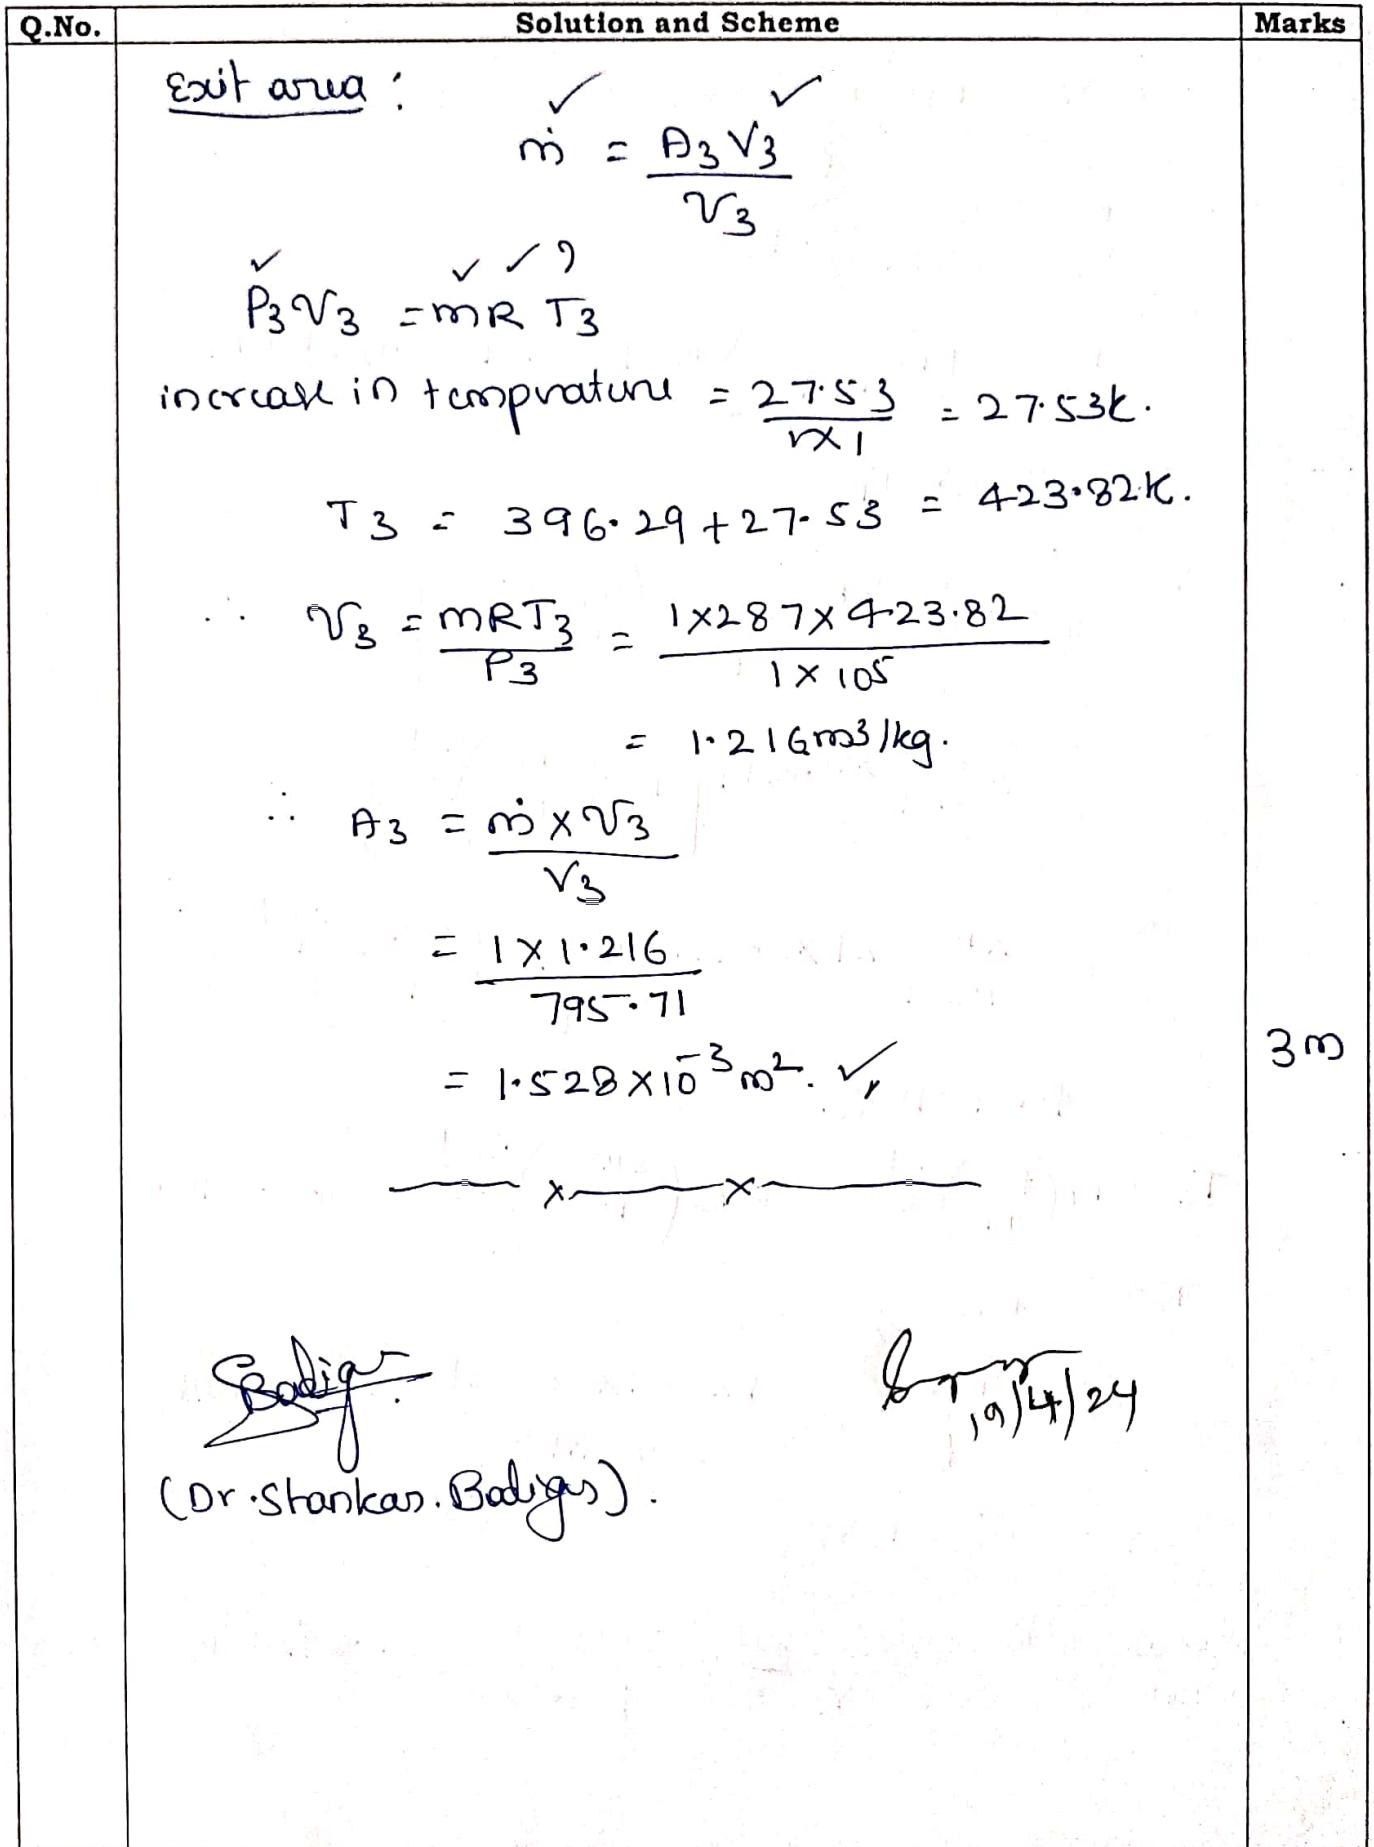 Q.No. Solution and Scheme Marks
Exit area :
ṁ = A3 V3 / v3
P3 v3 = mR T3
increase in temprature = 27.53 / 1×1 = 27.53k.
T3 = 396.29 + 27.53 = 423.82K.
∴ v3 = mRT3 / P3 = 1×287×423.82 / 1×10^5
= 1.216m3/kg.
∴ A3 = ṁ × v3 / V3
= 1×1.216 / 795.71
= 1.528×10^-3 m2. 3m
Badiger
19/4/24
(Dr. Shankar. Badiger).